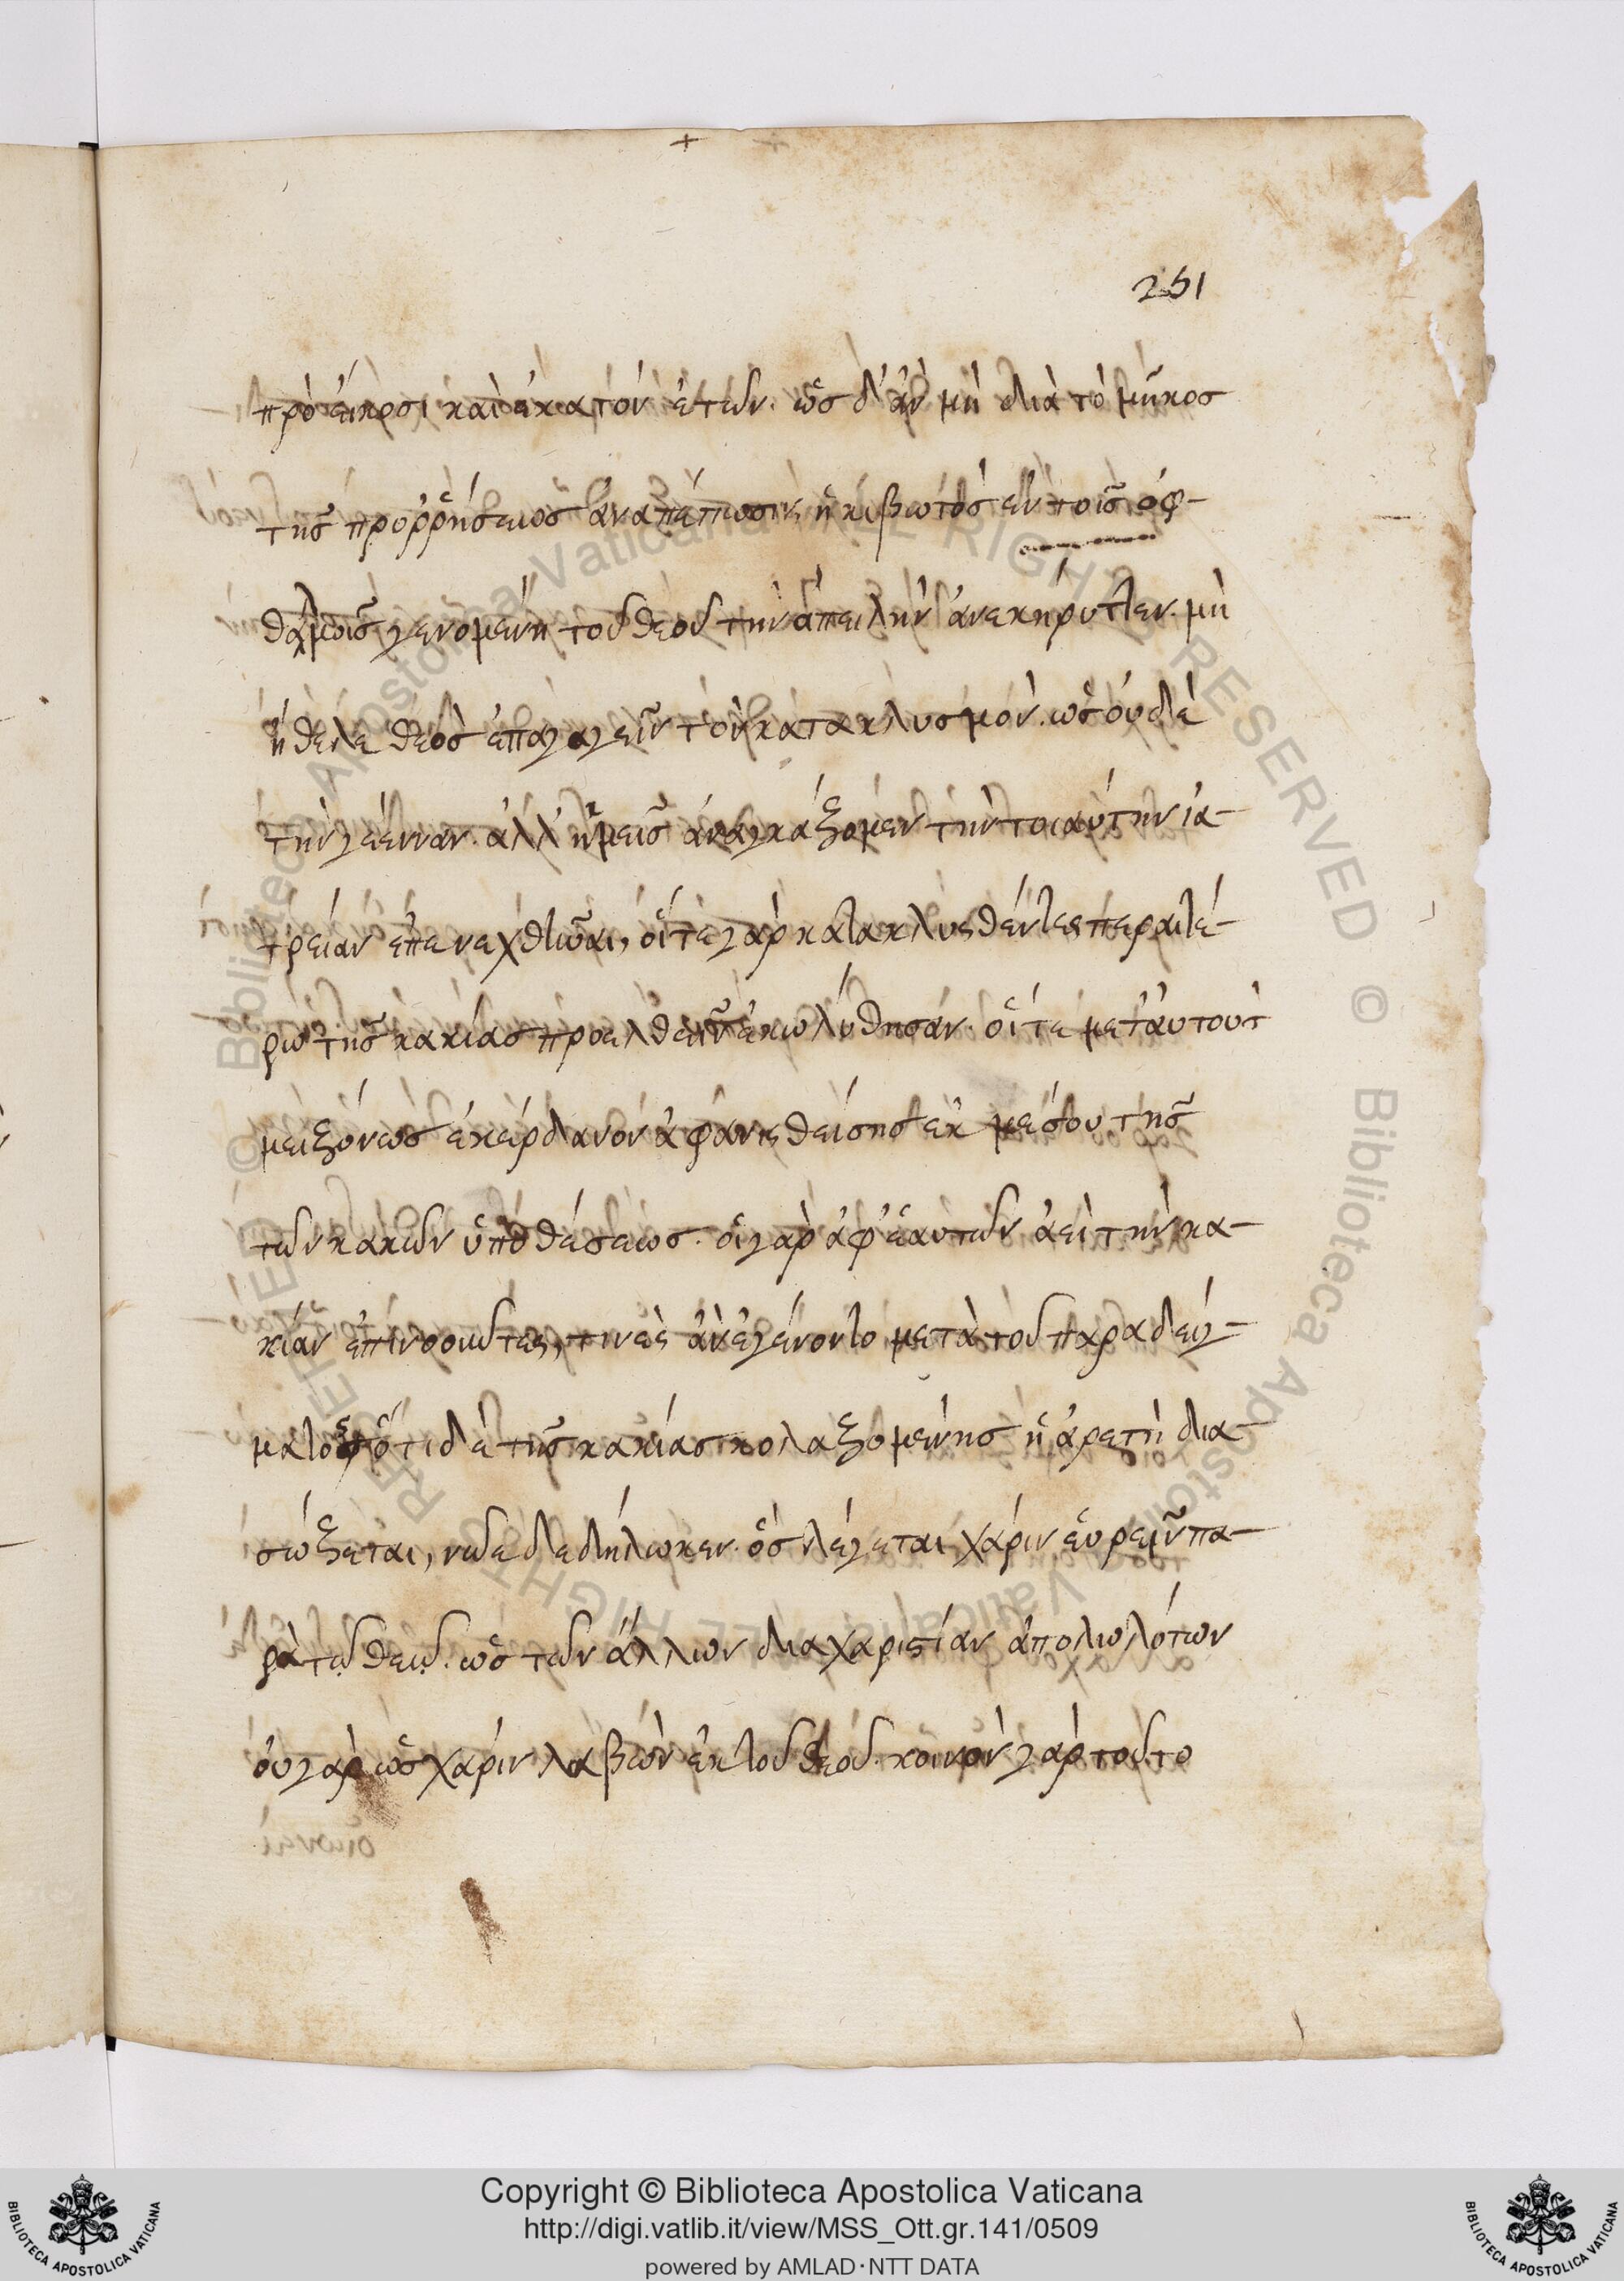 251
πρὸ εἴκοσι καὶ ἑκατὸν ἐτῶν. ὡς δ' ἂν μὴ διὰ τὸ μῆκος
τῆς προρρήσεως ἀναπέπωσιν, ἡ κιβωτὸς ἐν τοῖς ὀφ-
θαλμοῖς γενομένη τοῦ θεοῦ τὴν ἀπειλὴν ἀνεκήρυττεν. μὴ
ἤθελε θεὸς ἐπαγαγεῖν τὸν κατακλυσμόν. ὡς οὐδὲ
τὴν γέενναν. ἀλλ' ἡμεῖς ἀναγκάζομεν τὴν τοιαύτην ἰα-
τρείαν ἐπενεχθῆναι, οἵ τε γὰρ κατακλυσθέντες περαιτέ-
ρω τῆς κακίας προελθεῖν ἐκωλύθησαν. οἵ τε μετ' αὐτοὺς
μειζόνως ἐκέρδανον ἀφανισθείσης ἐκ μέσου τῆς
τῶν κακῶν ὑποθέσεως. οἱ γὰρ ἀφ' ἑαυτῶν ἀεὶ τὴν κα-
κίαν ἐπινοοῦντες, τίνες ἂν ἐγένοντο μετὰ τοῦ παραδείγ-
ματος; ὅτι δὲ τῆς κακίας κολαζομένης ἡ ἀρετὴ δια-
σώζεται, νῶε δεδήλωκεν. ὃς λέγεται χάριν εὑρεῖν πα-
ρὰ τῷ θεῷ. ὡς τῶν ἄλλων δι' ἀχαριστίαν ἀπολωλότων
οὐ γὰρ ὡς χάριν λαβὼν ἐκ τοῦ θεοῦ. κοινὸν γὰρ τοῦτο
Copyright © Biblioteca Apostolica Vaticana
http://digi.vatlib.it/view/MSS_Ott.gr.141/0509
powered by AMLAD·NTT DATA